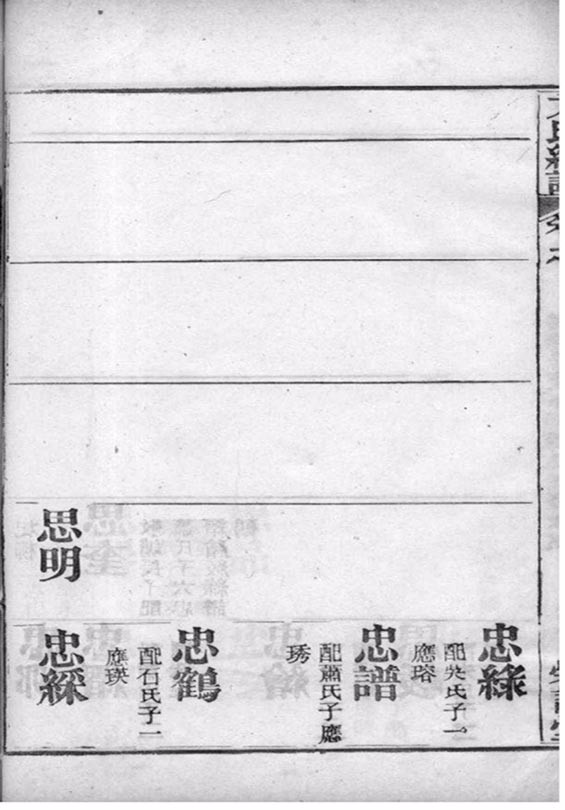 忠綠
配吳氏子一
應瑢
忠譜
配蕭氏子應
琇
忠鶴
配石氏子一
應瑛
思明
忠綵